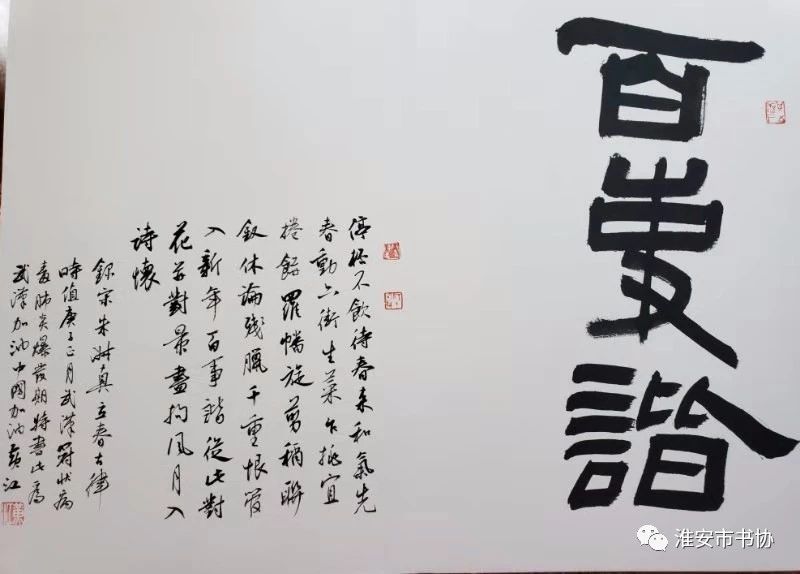 百事諧
停杯不飲待春来和氣先
春動六街生菜乍挑宜
捲餅羅幡旋剪稱聯
釵休論殘臘千重恨管
入新年百事諧從此對
花并對景盡拘風月入
詩懷
錄宋朱淑真立春古律
時值庚子正月武漢冠狀病
毒肺炎爆發期特書此為
武漢加油中國加油黃江
淮安市书协